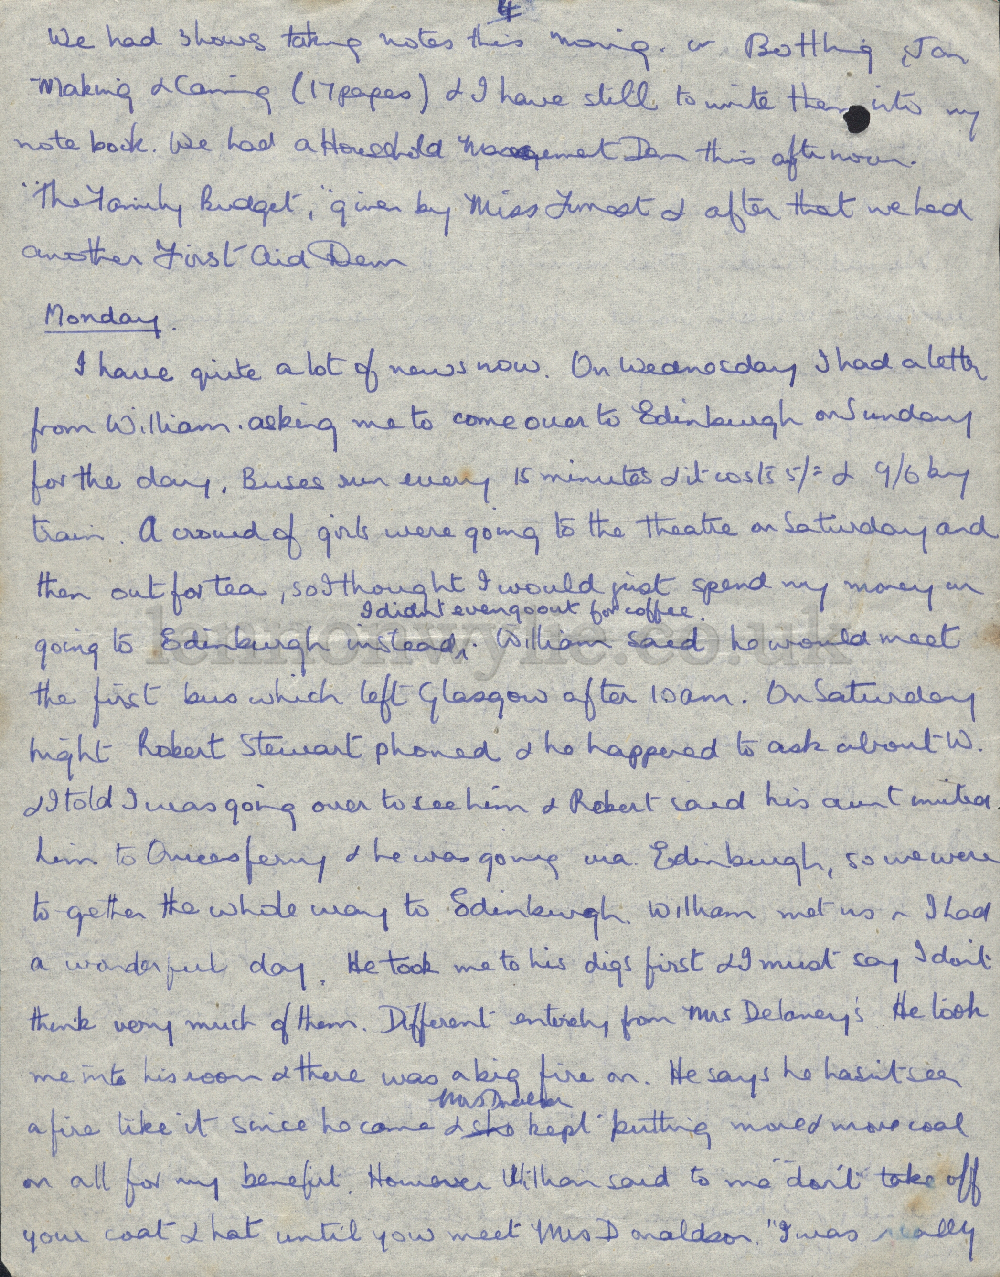 4
We had 3 hours taking notes this morning. on Bottling, Jam
Making & Canning (17 pages) & I have still to write them into my
note book. We had a Household Management Dem this afternoon.
"The Family Budget," given by Miss & after that we had
another First Aid Dem
Monday.
I have quite a lot of news now. On Wednesday I had a letter
from William. asking me to come over to Edinburgh on Sunday
for the day. Buses run every 15 minutes & it costs 5/= & 9/6 by
train. A crowd of girls were going to the theatre on Saturday and
then out for tea, so I thought I would just spend my money on
I didn't even go out for coffee.
going to Edinburgh instead. William said he would meet
the first bus which left Glasgow after 10am. On Saturday
night Robert Stewart phoned & he happened to ask about W.
& I told I was going over to see him & Robert said his aunt invited
him to Queensferry & he was going via Edinburgh, so we were
to-gether the whole way to Edinburgh. William met us & I had
a wonderful day. He took me to his digs first & I must say I don't
think very much of them. Different entirely from Mrs Delaney's He took
me into his room & there was a big fire on. He says he hasn't seen
Mrs
a fire like it since he came & she kept putting more & more coal
on all for my benefit. However William said to me "don't take off
your coat & hat until you meet Mrs Donaldson." I was really
lennonwylie.co.uk